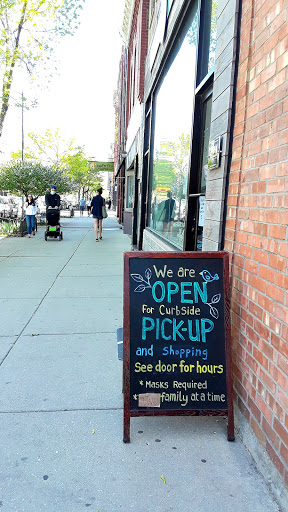 We are
OPEN
For Curbside
PICK-UP
and Shopping
See door for hours
* Masks Required
* family at a time